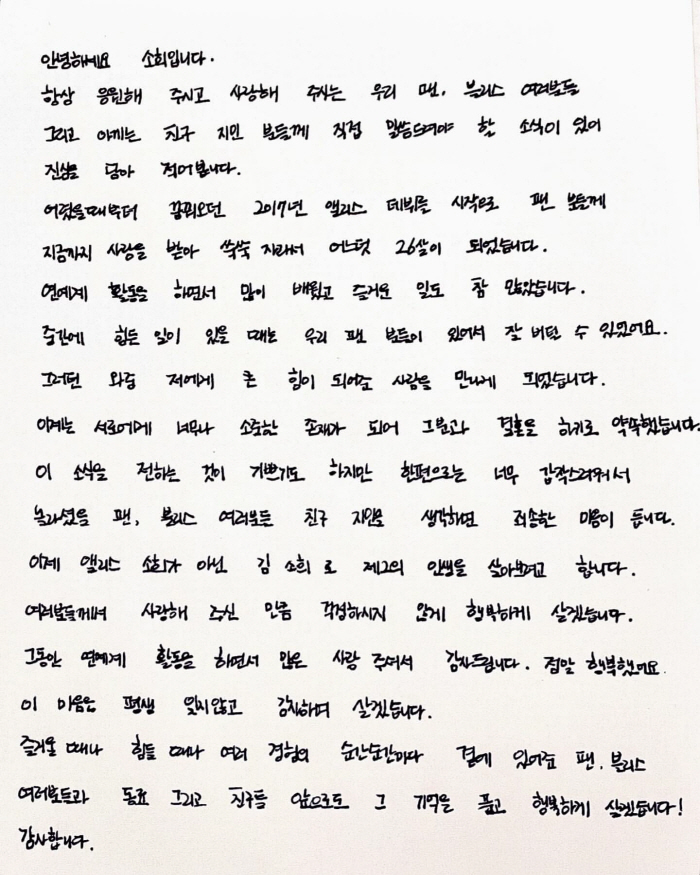 안녕하세요 소희입니다.
항상 응원해 주시고 사랑해 주시는 우리 팬, 블리스 여러분들
그리고 아끼는 친구 지인 분들께 직접 말씀드려야 할 소식이 있어
진심을 담아 적어봅니다.
어렸을때부터 꿈꿔오던 2017년 앨리스 데뷔를 시작으로 팬 분들께
지금까지 사랑을 받아 쑥쑥 자라서 어느덧 26살이 되었습니다.
연예계 활동을 하면서 많이 배웠고 즐거운 일도 참 많았습니다.
중간에 힘든 일이 있을 때는 우리 팬 분들이 있어서 잘 버틸 수 있었어요.
그러던 와중 저에게 큰 힘이 되어준 사람을 만나게 되었습니다.
이제는 서로에게 너무나 소중한 존재가 되어 그분과 결혼을 하기로 약속했습니다.
이 소식을 전하는 것이 기쁘기도 하지만 한편으로는 너무 갑작스러워서
놀라셨을 팬, 블리스 여러분든 친구 지인을 생각하면 죄송한 마음이 듭니다.
이제 앨리스 소희가 아닌 김소희로 제2의 인생을 살아보려고 합니다.
여러분들께서 사랑해 주신 만큼 걱정하시지 않게 행복하게 살겠습니다.
그동안 연예계 활동을 하면서 많은 사랑 주셔서 감사드립니다. 정말 행복했어요.
이 마음은 평생 잊지않고 감사하며 살겠습니다.
즐거울 때나 힘들 때나 여러 경험의 순간순간마다 곁에 있어준 팬, 블리스
여러분들과 동료 그리고 친구들 앞으로도 그 기억을 품고 행복하게 살겠습니다!
감사합니다.